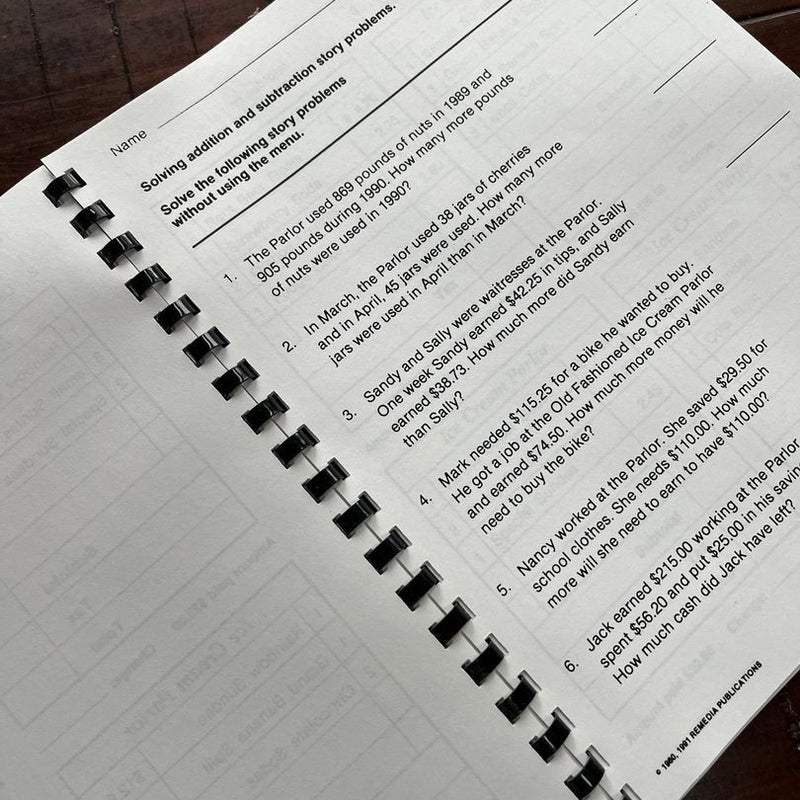 Name
Solving addition and subtraction story problems.
Solve the following story problems
without using the menu.
1. The Parlor used 869 pounds of nuts in 1989 and
905 pounds during 1990. How many more pounds
of nuts were used in 1990?
2. In March, the Parlor used 38 jars of cherries
and in April, 45 jars were used. How many more
jars were used in April than in March?
3. Sandy and Sally were waitresses at the Parlor.
One week Sandy earned $42.25 in tips, and Sally
earned $38.73. How much more did Sandy earn
than Sally?
4. Mark needed $115.25 for a bike he wanted to buy.
He got a job at the Old Fashioned Ice Cream Parlor
and earned $74.50. How much more money will he
need to buy the bike?
5. Nancy worked at the Parlor. She saved $29.50 for
school clothes. She needs $110.00. How much
more will she need to earn to have $110.00?
6. Jack earned $215.00 working at the Parlor
spent $56.20 and put $25.00 in his
How much cash did Jack have left?
© 1980, 1991 REMEDIA PUBLICATIONS